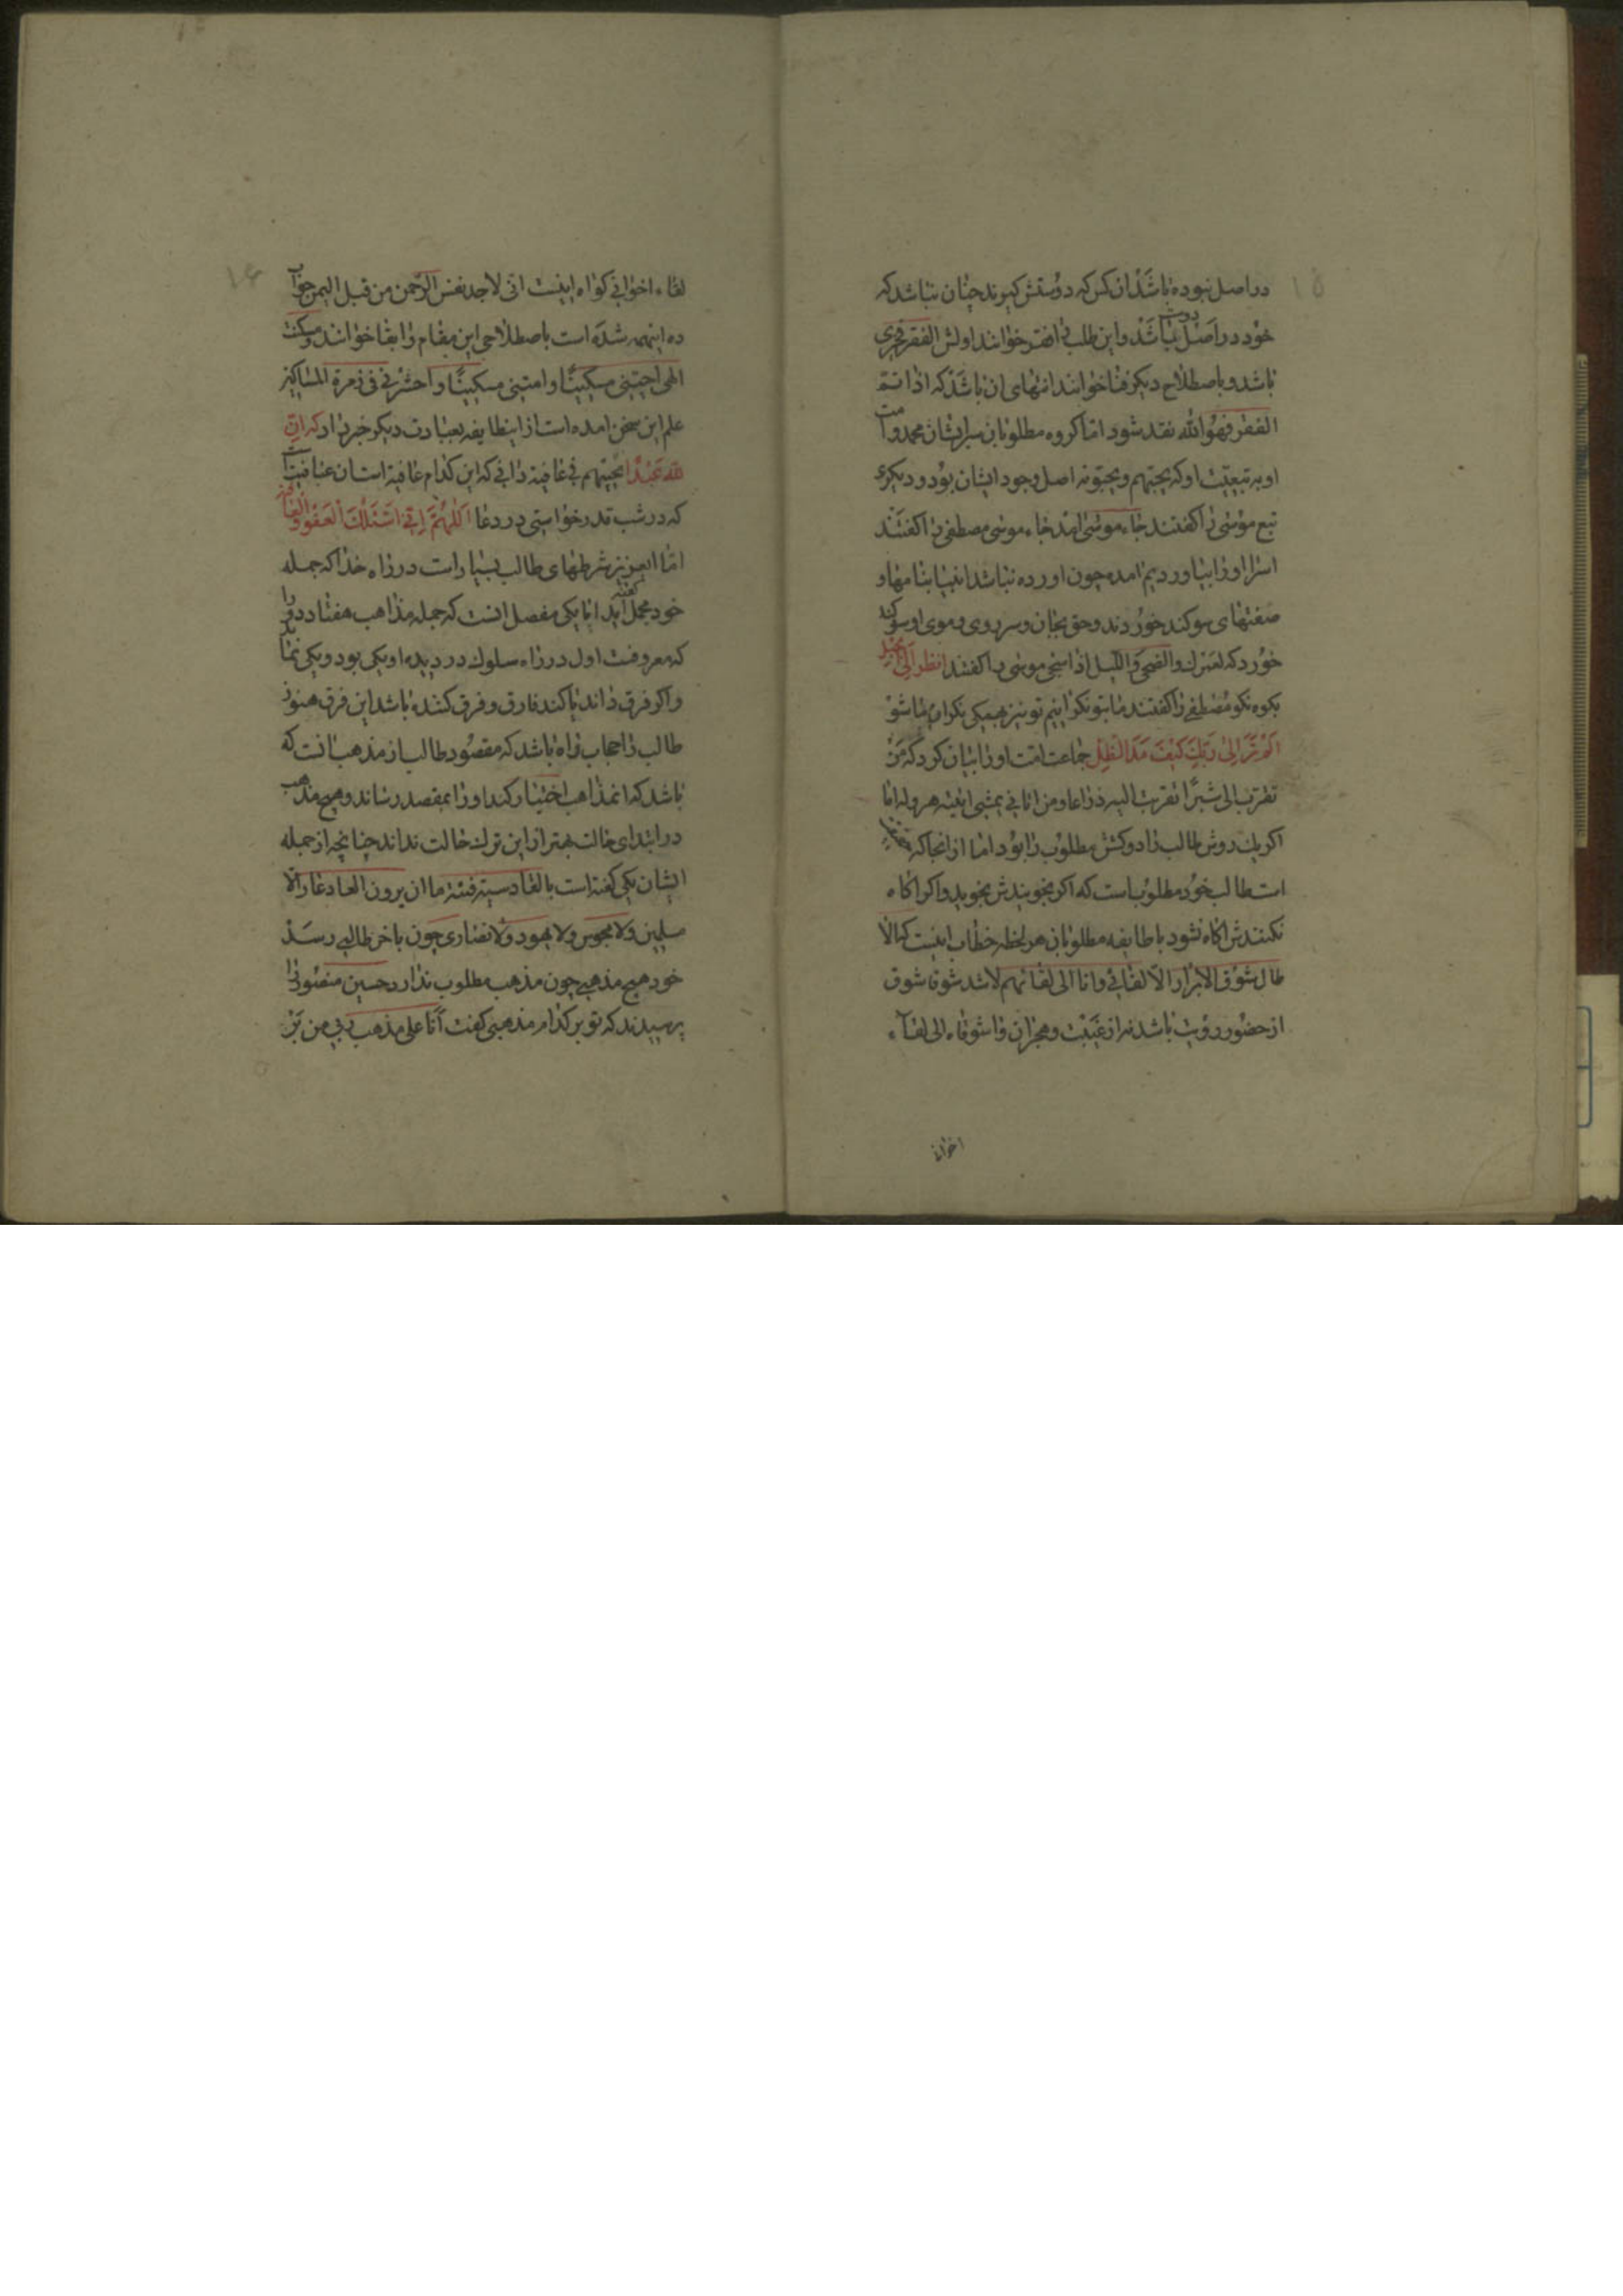 ۱۵
در اصل نبوده باشد ان کس که دوستش کیرند چنان نباشد که
خود در اصل دوست باشد و این طلب را فقر خوانند اولش الفقر فخری
باشد و باصطلاح دیکر فنا خوانند انتهای ان باشد که اذا تم
الفقر فهو الله نقد شود اما کروه مطلوبان سرایشان محمد و امت
او بتبعیت او که یحبهم و یحبونه اصل وجود ایشان بود و دیکری
تبع موسی را کفتند جاء موسی امد جاء موسی مصطفی را کفتند
اسرا او را بیاوردیم امده چون اورده نباشد انبیا بنامها و
صفتهای سوکند خوردند و حق بجان و سر و روی و موی او سوکند
خورد که لعمرك والضحی واللیل اذا سجی موسی را کفتند انظر الی الجبل
بکوه نکر مصطفی را کفتند ما بتو نکرانیم تو نیز همکی نکران ما شو
الم تر الی ربك کیف مد الظل جماعت امت او را بیان کرد که من
تقرب الی شبرا تقربت الیه ذراعا و من اتانی یمشی اتیته هروله اما
اکر یك روش طالب را دو کشش مطلوب را بود اما ازانجا که
است طالب خود مطلوب است که اکر نجویندش نجوید و اکر اکاه
نکنندش اکاه نشود با طایفه مطلوبان هر لحظه خطاب اینست که الا
طال شوق الابرار الا لقائی و انا الی لقائهم لاشد شوقا شوق
از حضور رویت باشد نه از غیبت و هجران وا شوقاه الی لقاء
اخوانی
۱۶
لقاء اخوانی کواه اینست انی لاجد نفس الرحمن من قبل الیمن جواب
ده اینهمه شده است باصطلاحی این مقام را بقا خوانند و مسکنت
الهی احینی مسکینا و امتنی مسکینا و احشرنی فی زمرة المساکین
علم این سخن امده است از این طایفه بعبارت دیکر خبر داد که ان
لله عبدا یحییهم فی عافیة دانی که این کدام عافیة است ان عافیتست
که در شب قدر خواستی در دعا اللهم انی اسئلك العفو والعافیة
اما ایعزیز شرطهای طالب بسیار است در راه خدا که جمله
خود مجمل کفته اید اما یکی مفصل انست که جمله مذاهب هفتاد و دو را
که معروفست اول در راه سلوك در دیده او یکی بود و یکی نماید
و اکر فرق داند یا کند فارق و فرق کننده باشد این فرق هنوز
طالب را حجاب راه باشد که مقصود طالب از مذهب انست که
باشد که انمذاهب اختیار کند او را بمقصد رساند و هیچ مذهب
در ابتدای حالت بهتر از این ترك حالت نداند چنانچه از جمله
ایشان یکی کفته است بالقادسیة فئة ما ان یرون العار عارا لا
مسلمین ولا مجوس ولا یهود ولا نصاری چون باخر طالبی رسد
خود هیچ مذهبی چون مذهب مطلوب ندارد حسین منصور را
پرسیدند که تو بر کدام مذهبی کفت انا علی مذهب ربی من بز